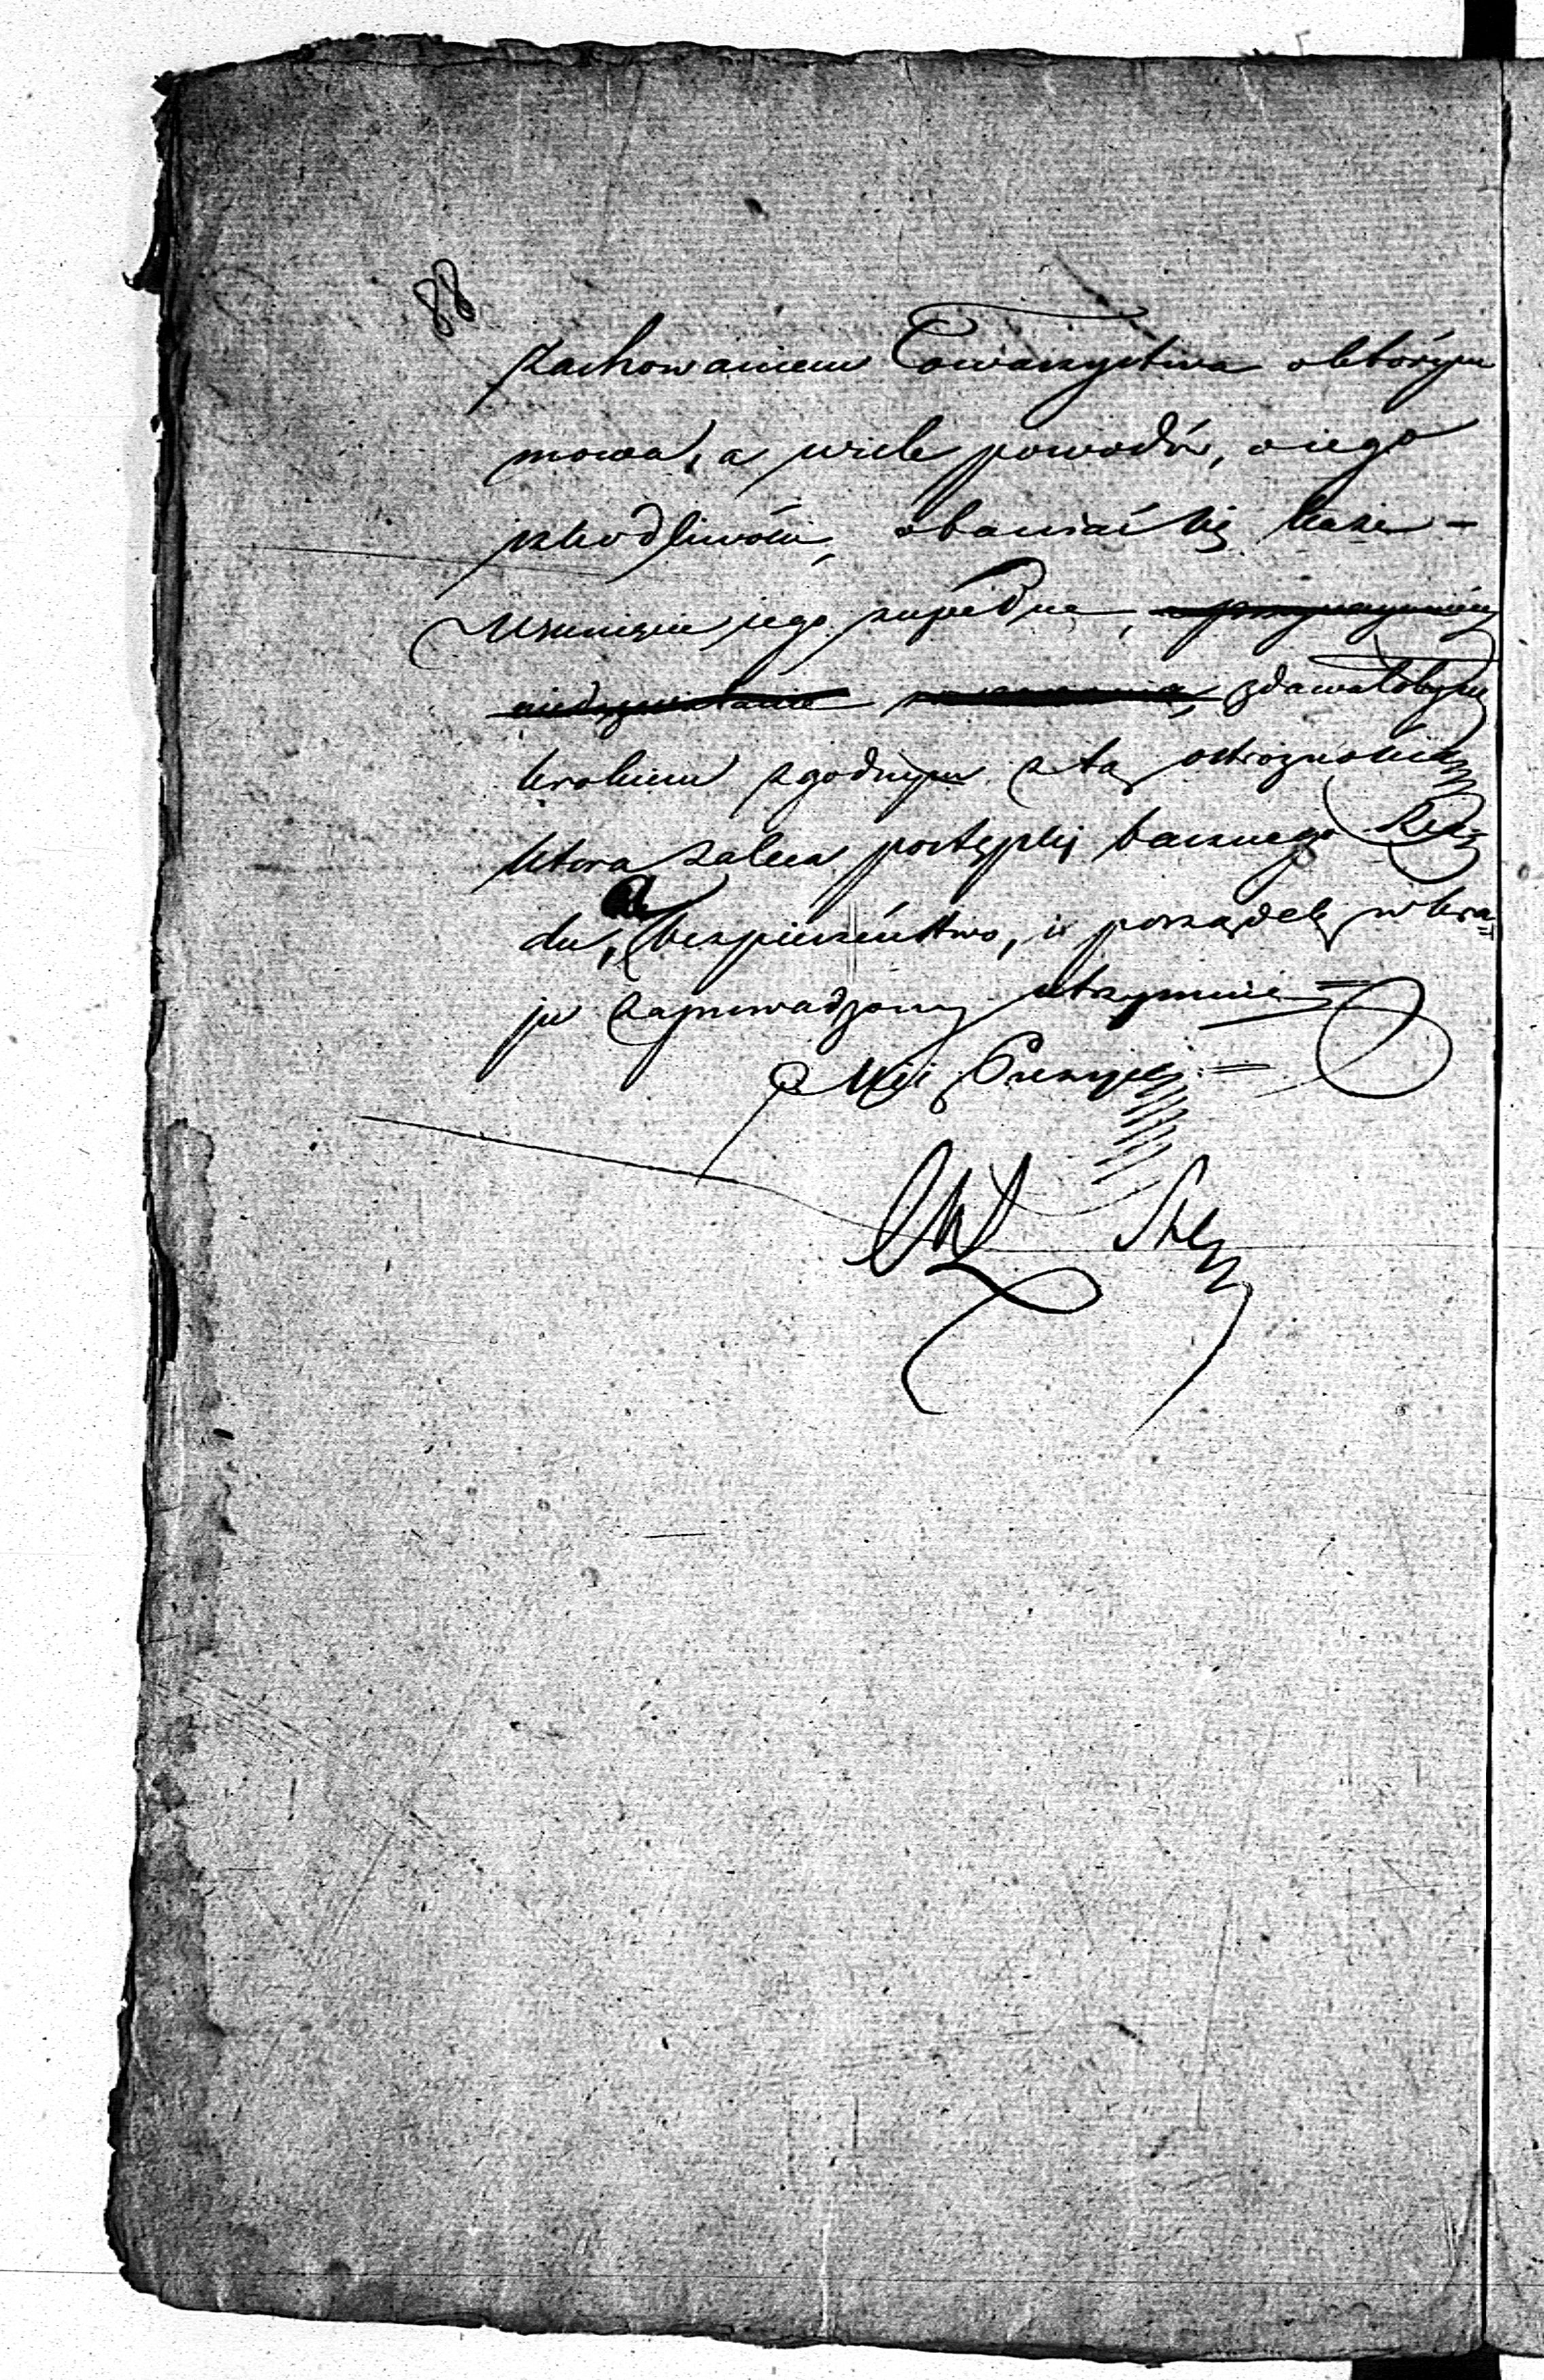 88
zachowaniem Towarzystwa o którym
mowa, a wiele powodów, o iego
szkodliwości, obawiać się każe –
Usunięcie jego zupełne, a przynajmniéy
zdawałoby się
krokiem zgodnym z tą ostrożnością
która zaleca postępki bacznego Rzą=
du, bezpieczeństwo, i porządek w kra=
ju zaprowadzony utrzymuie =